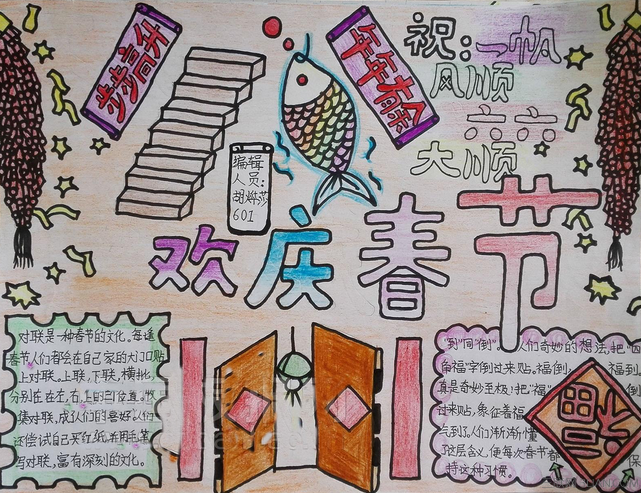 步步高升
年年有余
祝：一帆
风顺
六六
大顺
编辑
人员：
胡烨莎
601
欢庆春节
对联是一种春节的文化。每逢
春节人们都会在自己家的大门口贴
上对联。上联，下联，横批，
分别在左，右，上的
集对联，成了人们的喜好。人们
还尝试自己买红纸，用毛笔
写对联，富有深刻的文化。
到"同"倒"。人们奇妙的想法，把"
福字倒过来贴。福倒，福到，
真是奇妙至极！把"福"倒
过来贴，象征着福
气到了。人们渐渐懂
这层含义，使每次春节都
持这种习惯。
保
福